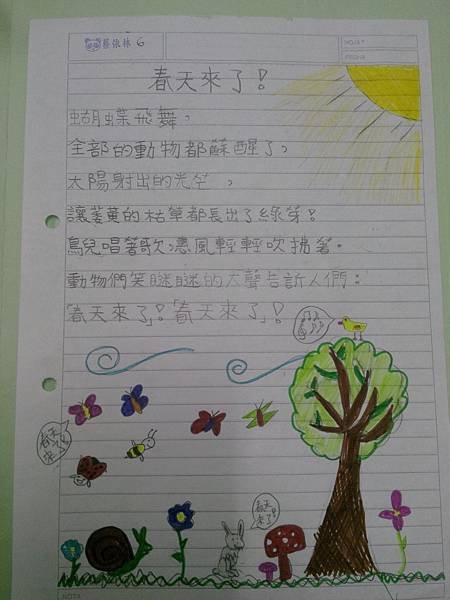 蔡依林 6
NO./
春天來了!
蝴蝶飛舞,
全部的動物都蘇醒了,
太陽射出的光茫,
讓萎黃的枯草都長出了綠芽!
鳥兒唱著歌,清風輕輕吹拂著。
動物們笑瞇瞇的大聲告訴人們:
「春天來了」!「春天來了」!
春天來了!
春天來了!
NOTA